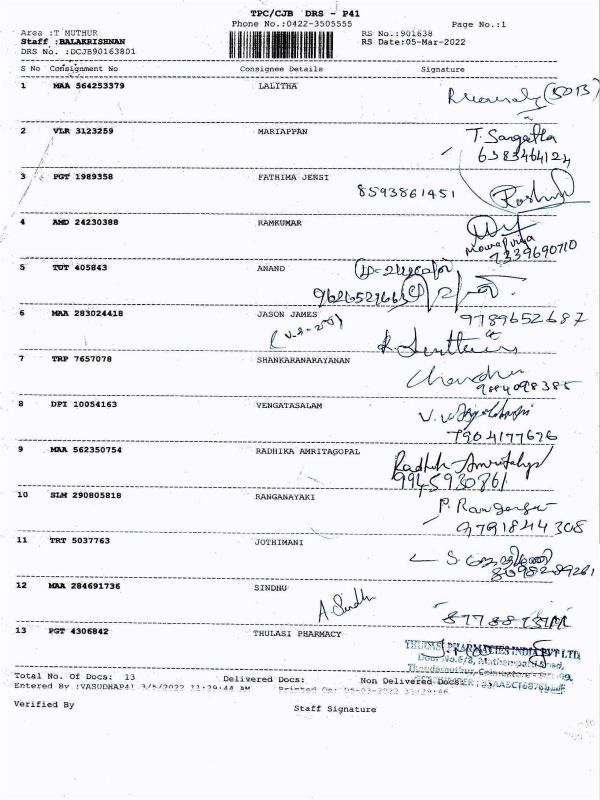 TPC/CJB DRS - P41
Phone No.:0422-3505555 Page No.:1
Area :T MUTHUR RS No.:901638
Staff :BALAKRISHNAN RS Date:05-Mar-2022
DRS No. :DCJB90163801
S No Consignment No Consignee Details Signature
1 MAA 564253379 LALITHA
(5013)
2 VLR 3123259 MARIAPPAN T. Sangetha
6383464124
3 PGT 1989358 FATHIMA JENSI
8593861451
4 AMD 24230388 RAMKUMAR
7339690710
5 TUT 405843 ANAND
6 MAA 283024418 JASON JAMES 9789652687
7 TRP 7657078 SHANKARANARAYANAN
Chandra
8 DPI 10054163 VENGATASALAM
7904177676
9 MAA 562350754 RADHIKA AMRITAGOPAL
9945930861
10 SLM 290805818 RANGANAYAKI
9791844308
11 TRT 5037763 JOTHIMANI
8098289261
12 MAA 284691736 SINDHU
A. Sindhu
13 PGT 4306842 THULASI PHARMACY
THULASI PHARMACIES INDIA PVT LTD,
Door No.6/8,
Total No. Of Docs: 13 Delivered Docs: Non Delivered Docs:
Entered By :VASUDHAP41 3/5/2022 11:29:44 AM Printed On: 05-03-2022 11:29:46
Verified By Staff Signature